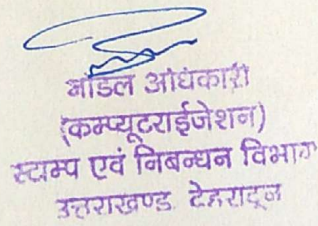 नोडल अधिकारी
(कम्प्यूटराईजेशन)
स्टाम्प एवं निबन्धन विभाग
उत्तराखण्ड देहरादून